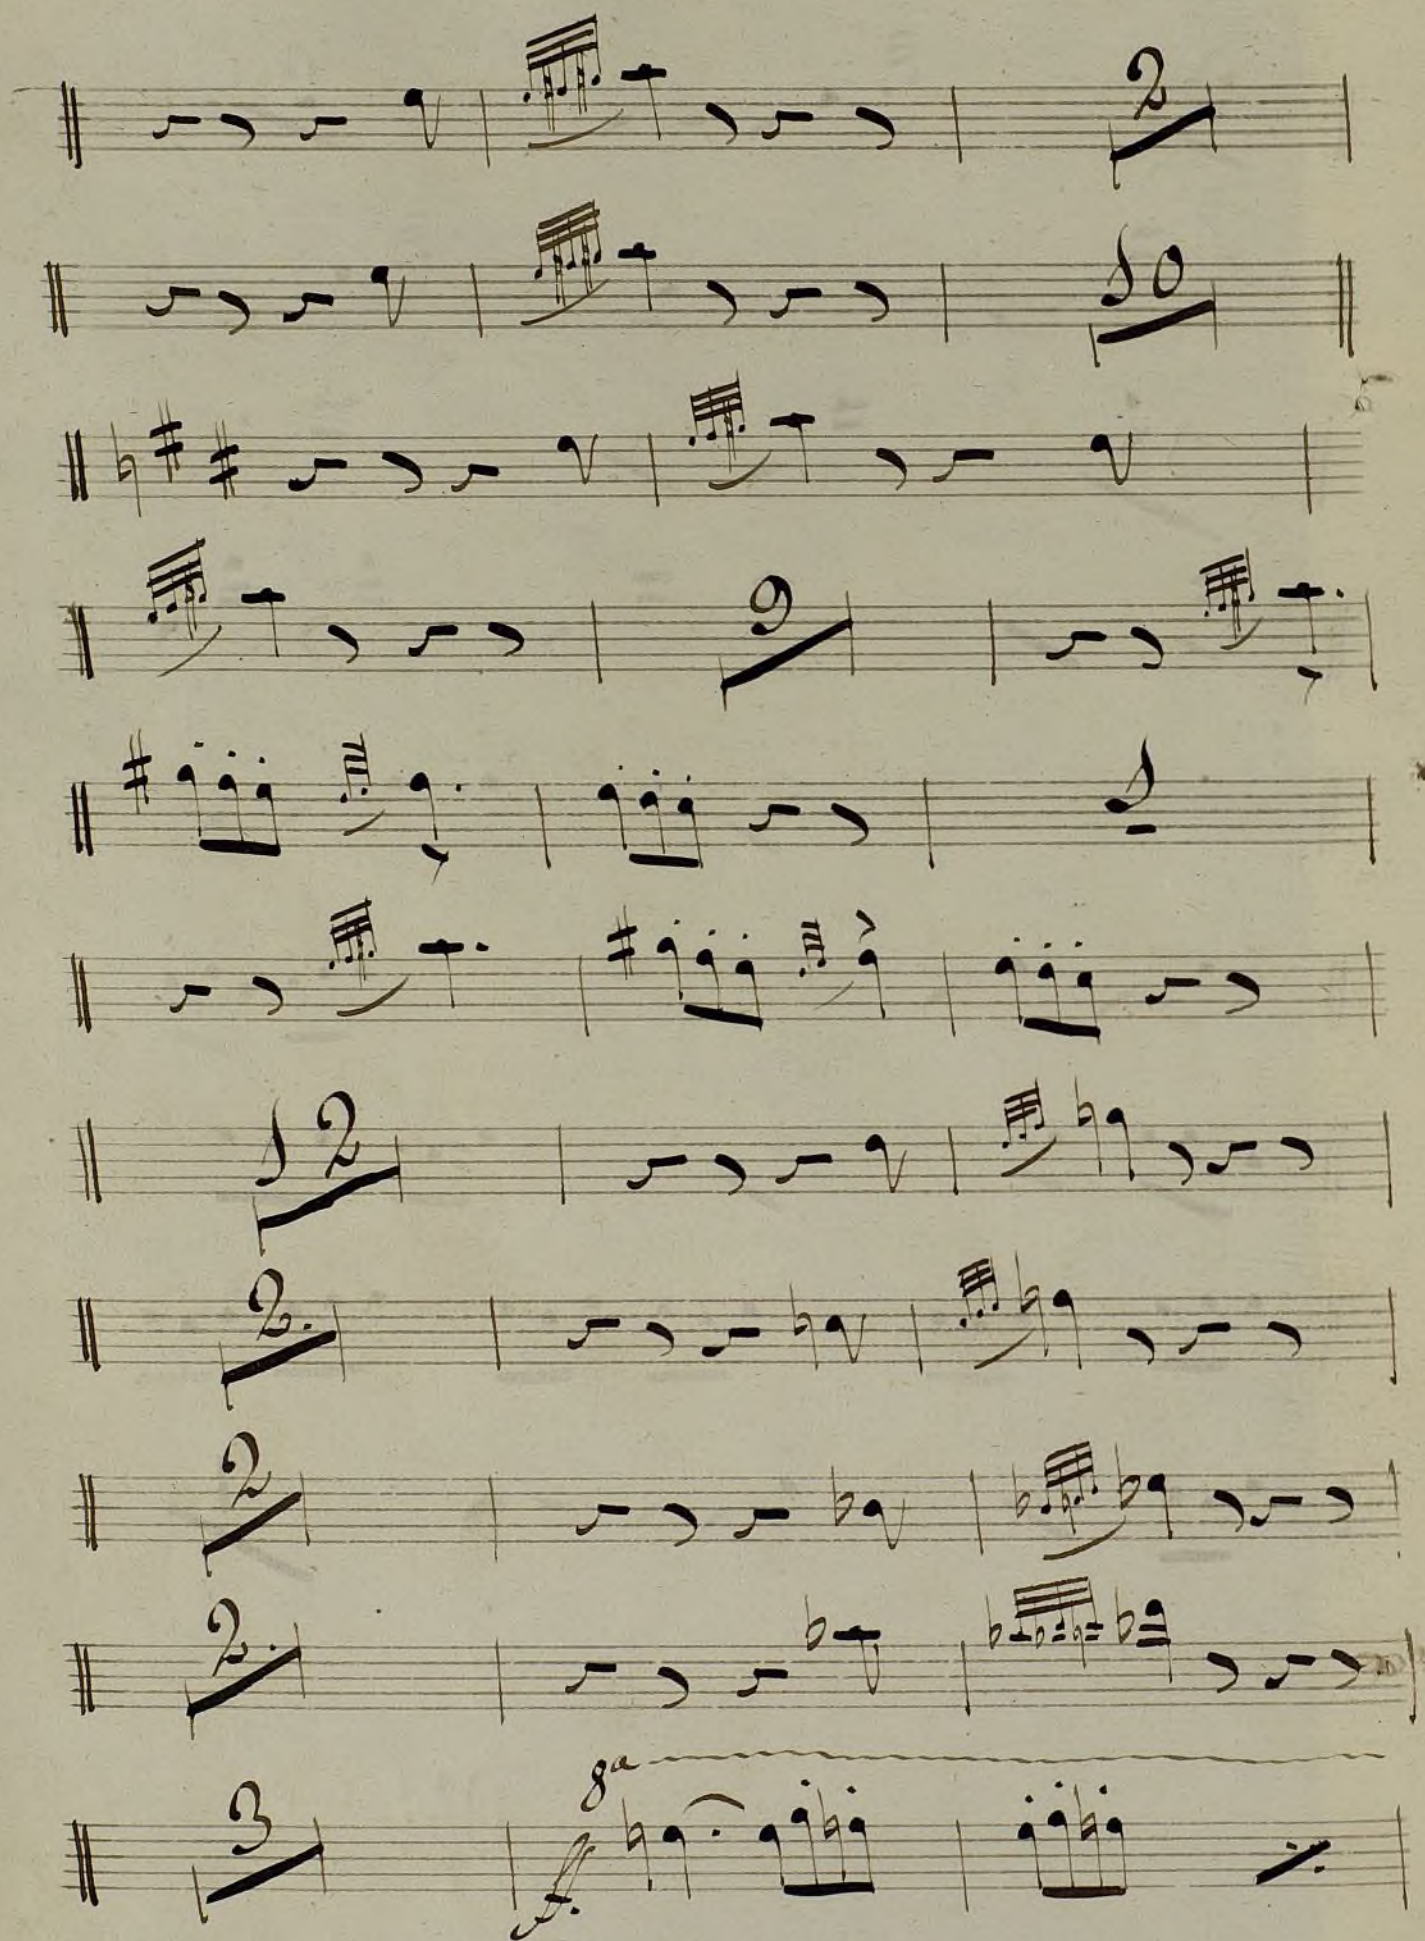 2
10
9
1
12
2.
2
2.
3
8a
ff.